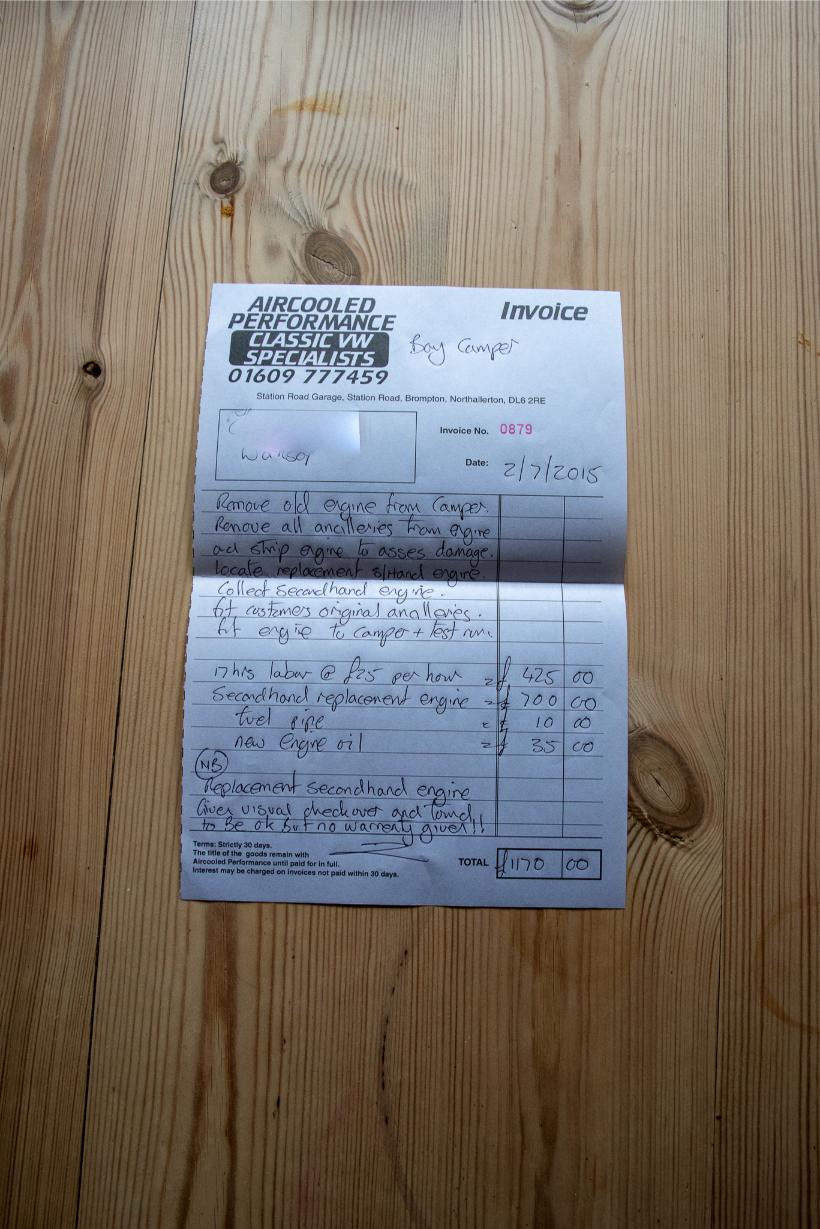 AIRCOOLED
PERFORMANCE
CLASSIC VW
SPECIALISTS
01609 777459
Invoice
Bay Camper
Station Road Garage, Station Road, Brompton, Northallerton, DL6 2RE
Invoice No. 0879
Date: 2/7/2015
Remove old engine from Camper.
Remove all ancilleries from engine
and strip engine to asses damage.
locate replacement s/Hand engine.
Collect secondhand engine.
fit customers original ancilleries.
fit engine to camper + test run.
17 hrs labor @ £25 per hour = £ 425 00
Secondhand replacement engine = £ 700 00
fuel pipe = £ 10 00
new Engine oil = £ 35 00
NB
Replacement secondhand engine
Given visual checkover and found
to Be ok but no warrenty given!!
Terms: Strictly 30 days.
The title of the goods remain with
Aircooled Performance until paid for in full.
Interest may be charged on invoices not paid within 30 days.
TOTAL £1170 00